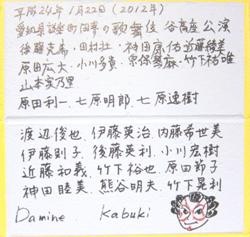 平成24年1月22日(2012年)
愛知県設楽町田峯の歌舞伎 谷高座公演
後藤克希・田村社・神田 佑 近藤綾美
原田広大・小川多喜・ 竹下裕唯
山本実乃里
原田利一 七原明郎 七原達樹
渡辺俊也 伊藤英治 内藤希世美
伊藤則子 後藤英利 小川宏樹
近藤和義 竹下裕也 原田節子
神田睦美 熊谷明夫 竹下晃利
Damine Kabuki